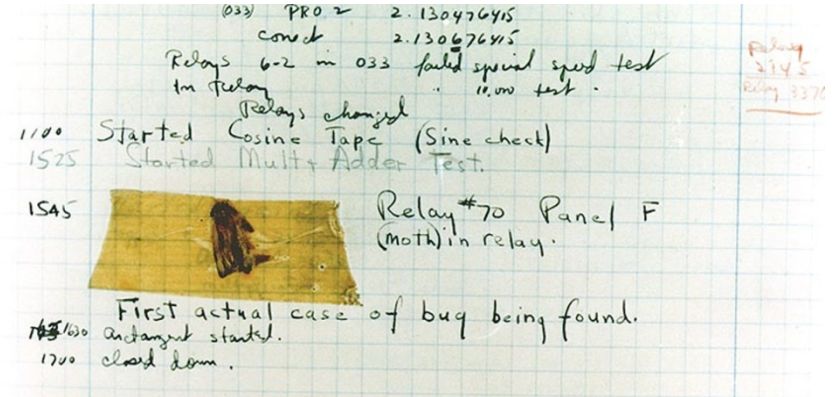 (033) PRO 2 2.130476415
conect 2.130676415
Relays 6-2 in 033 failed special speed test
In Relay " 10,000 test.
Relays changed
1100 Started Cosine Tape (Sine check)
1525 Started Mult + Adder Test.
1545 Relay #70 Panel F
(moth) in relay.
First actual case of bug being found.
1630 arctangent started.
1700 closed down.
Relay
2145
Relay 3370